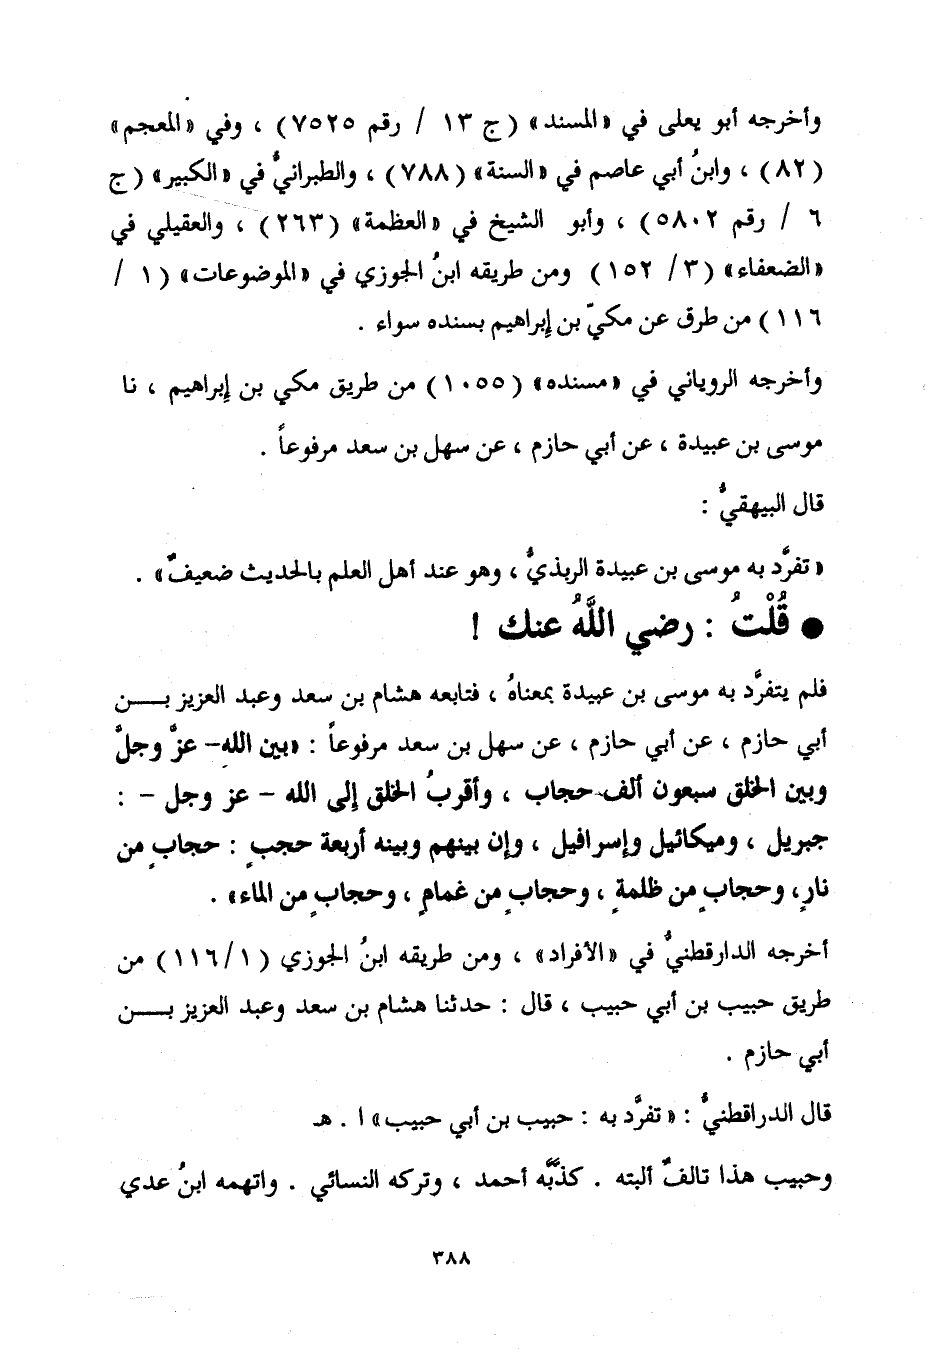 وأخرجه أبو يعلى في «المسند» (ج ١٣ / رقم ٧٥٢٥) ، وفي «المعجم»
(٨٢) ، وابنُ أبي عاصم في «السنة» (٧٨٨) ، والطبرانيُّ في «الكبير» (ج
٦ / رقم ٥٨٠٢) ، وأبو الشيخ في «العظمة» (٢٦٣) ، والعقيلي في
«الضعفاء» (٣/ ١٥٢) ومن طريقه ابنُ الجوزي في «الموضوعات» (١ /
١١٦) من طرق عن مكيّ بن إبراهيم بسنده سواء .
وأخرجه الروياني في «مسنده» (١٠٥٥) من طريق مكي بن إبراهيم ، نا
موسى بن عبيدة ، عن أبي حازم ، عن سهل بن سعد مرفوعاً .
قال البيهقيُّ :
«تفرَّد به موسى بن عبيدة الربذيُّ ، وهو عند أهل العلم بالحديث ضعيفٌ» .
● قُلْتُ : رضي اللَّهُ عنك !
فلم يتفرَّد به موسى بن عبيدة بمعناهُ ، فتابعه هشام بن سعد وعبد العزيز بـــن
أبي حازم ، عن أبي حازم ، عن سهل بن سعد مرفوعاً : «بين اللهِ- عزَّ وجلَّ
وبين الخلق سبعون ألف حجاب ، وأقربُ الخلق إلى الله - عز وجل - :
جبريل ، وميكائيل وإسرافيل ، وإن بينهم وبينه أربعة حجبٍ : حجابٍ من
نارٍ، وحجابٍ من ظلمةٍ ، وحجابٍ من غمامٍ ، وحجابٍ من الماء» .
أخرجه الدارقطنيُّ في «الأفراد» ، ومن طريقه ابنُ الجوزي (١١٦/١) من
طريق حبيب بن أبي حبيب ، قال : حدثنا هشام بن سعد وعبد العزيز بـــن
أبي حازم .
قال الدراقطنيُّ : «تفرَّد به : حبيب بن أبي حبيب» ا . هـ
وحبيب هذا تالفٌ ألبته . كذَّبه أحمد ، وتركه النسائي . واتهمه ابنُ عدي
٣٨٨